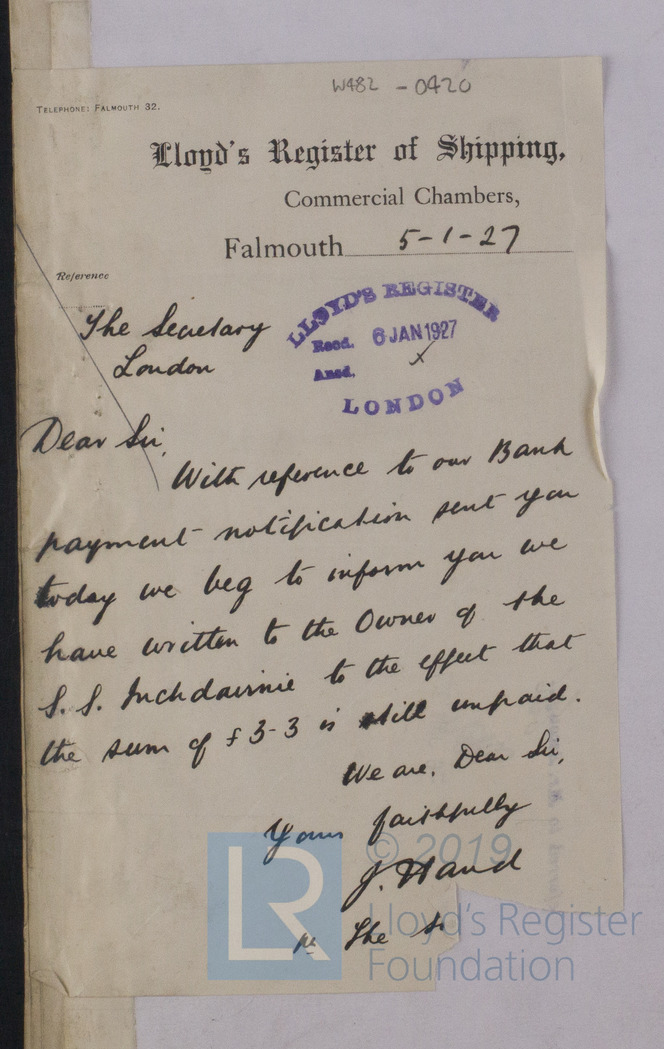 W482 - 0420
TELEPHONE: FALMOUTH 32.
Lloyd's Register of Shipping,
Commercial Chambers,
Falmouth 5-1-27
Reference
The Secretary
London
LLOYD'S REGISTER
Recd. 6 JAN 1927
Ansd.
LONDON
Dear Sir,
With reference to our Bank
payment notification sent you
today we beg to inform you we
have written to the Owner of the
S.S. Inchdairnie to the effect that
the sum of £3-3 is still unpaid.
We are, Dear Sir,
Yours faithfully
J. Hand
pr The
© 2019
LR
Lloyd's Register
Foundation